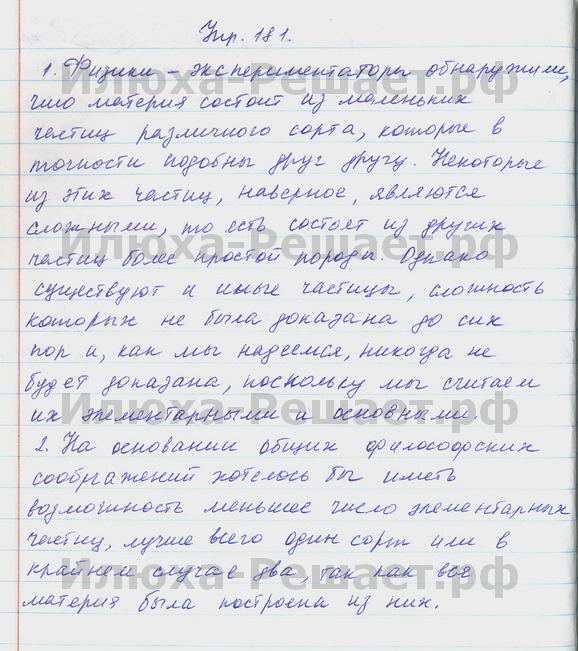 Упр. 181.
1. Физики – экспериментаторы обнаружили,
что материя состоит из маленьких
частиц различного сорта, которые в
точности подобны друг другу. Некоторые
из этих частиц, наверное, являются
сложными, то есть состоят из других
частиц более простой породы. Однако
существуют и иные частицы, сложность
которых не была доказана до сих
пор и, как мы надеемся, никогда не
будет доказана, поскольку мы считаем
их элементарными и основными.
2. На основании общих философских
соображений хотелось бы иметь
возможность меньшее число элементарных
частиц, лучше всего один сорт или в
крайнем случае два, так как вся
материя была построена из них.
Илюха-Решает.рф
Илюха-Решает.рф
Илюха-Решает.рф
Илюха-Решает.рф